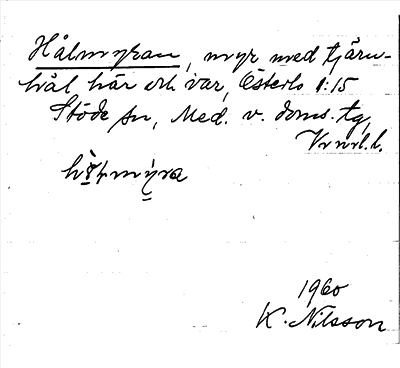 Hålmyran, myr med tjärn-
hål här och var, Österlo 1:15
Stöde sn, Med. v. doms. tg,
Vrnrl. l.
myra
1960
K. Nilsson